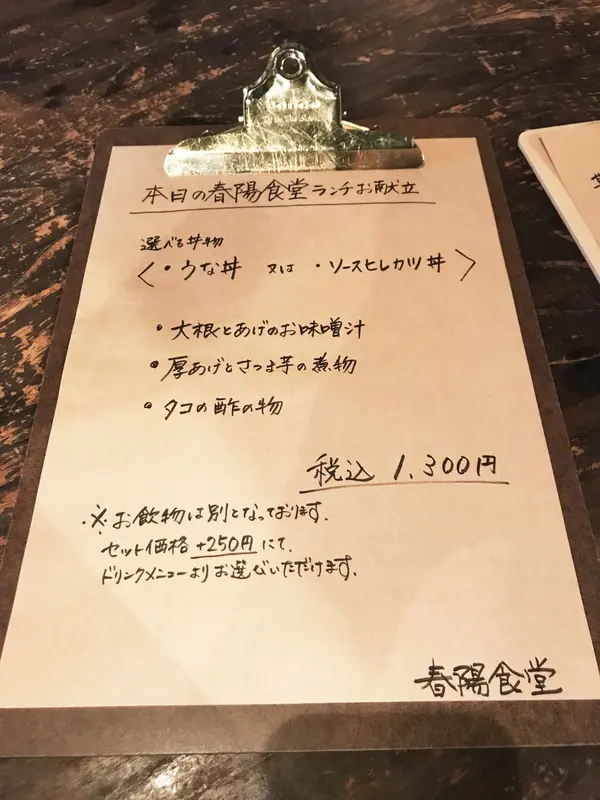 本日の春陽食堂ランチお献立
選べる丼物
〈・うな丼 又は ・ソースヒレカツ丼〉
・大根とあげのお味噌汁
・厚あげとさつま芋の煮物
・タコの酢の物
税込 1,300円
※お飲物は別となっております。
セット価格 +250円にて、
ドリンクメニューよりお選びいただけます。
春陽食堂